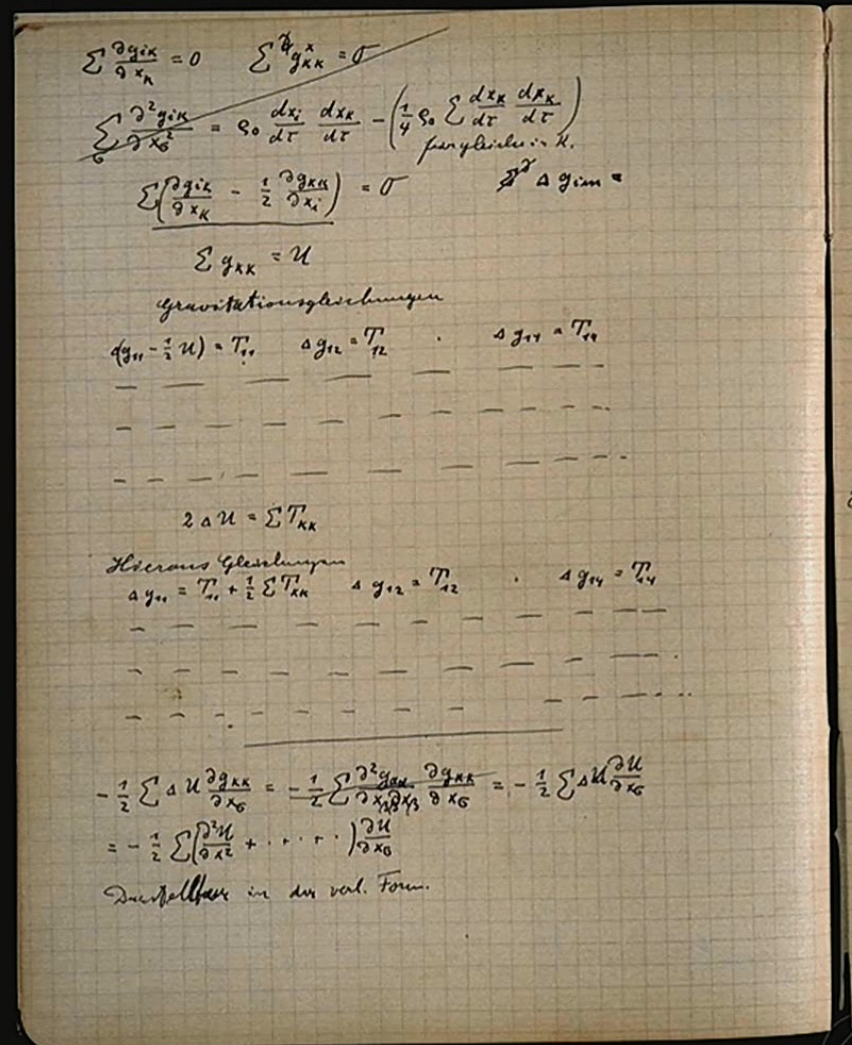 ∑ ∂g_iκ/∂x_κ = 0 ∑ g_κκ^x = 0
∑_σ ∂²g_iκ/∂x_σ² = ρ₀ dx_i/dτ dx_κ/dτ − (1/4 ρ₀ ∑ dx_κ/dτ dx_κ/dτ)
für gleiche i u. κ.
∑(∂g_iκ/∂x_κ − 1/2 ∂g_κκ/∂x_i) = 0 Δ g_im =
∑ g_κκ = U
Gravitationsgleichungen
Δ(g₁₁ − 1/2 U) = T₁₁ Δg₁₂ = T₁₂ · Δg₁₄ = T₁₄
2 Δ U = ∑ T_κκ
Hieraus Gleichungen
Δg₁₁ = T₁₁ + 1/2 ∑ T_κκ Δg₁₂ = T₁₂ · Δg₁₄ = T₁₄
− 1/2 ∑ Δ U ∂g_κκ/∂x_σ = − 1/2 ∑ ∂²g_αα/∂x_β∂x_β ∂g_κκ/∂x_σ = − 1/2 ∑ Δ U ∂U/∂x_σ
= − 1/2 ∑(∂²U/∂x² + · · · ·) ∂U/∂x_σ
Darstellbar in der verl. Form.